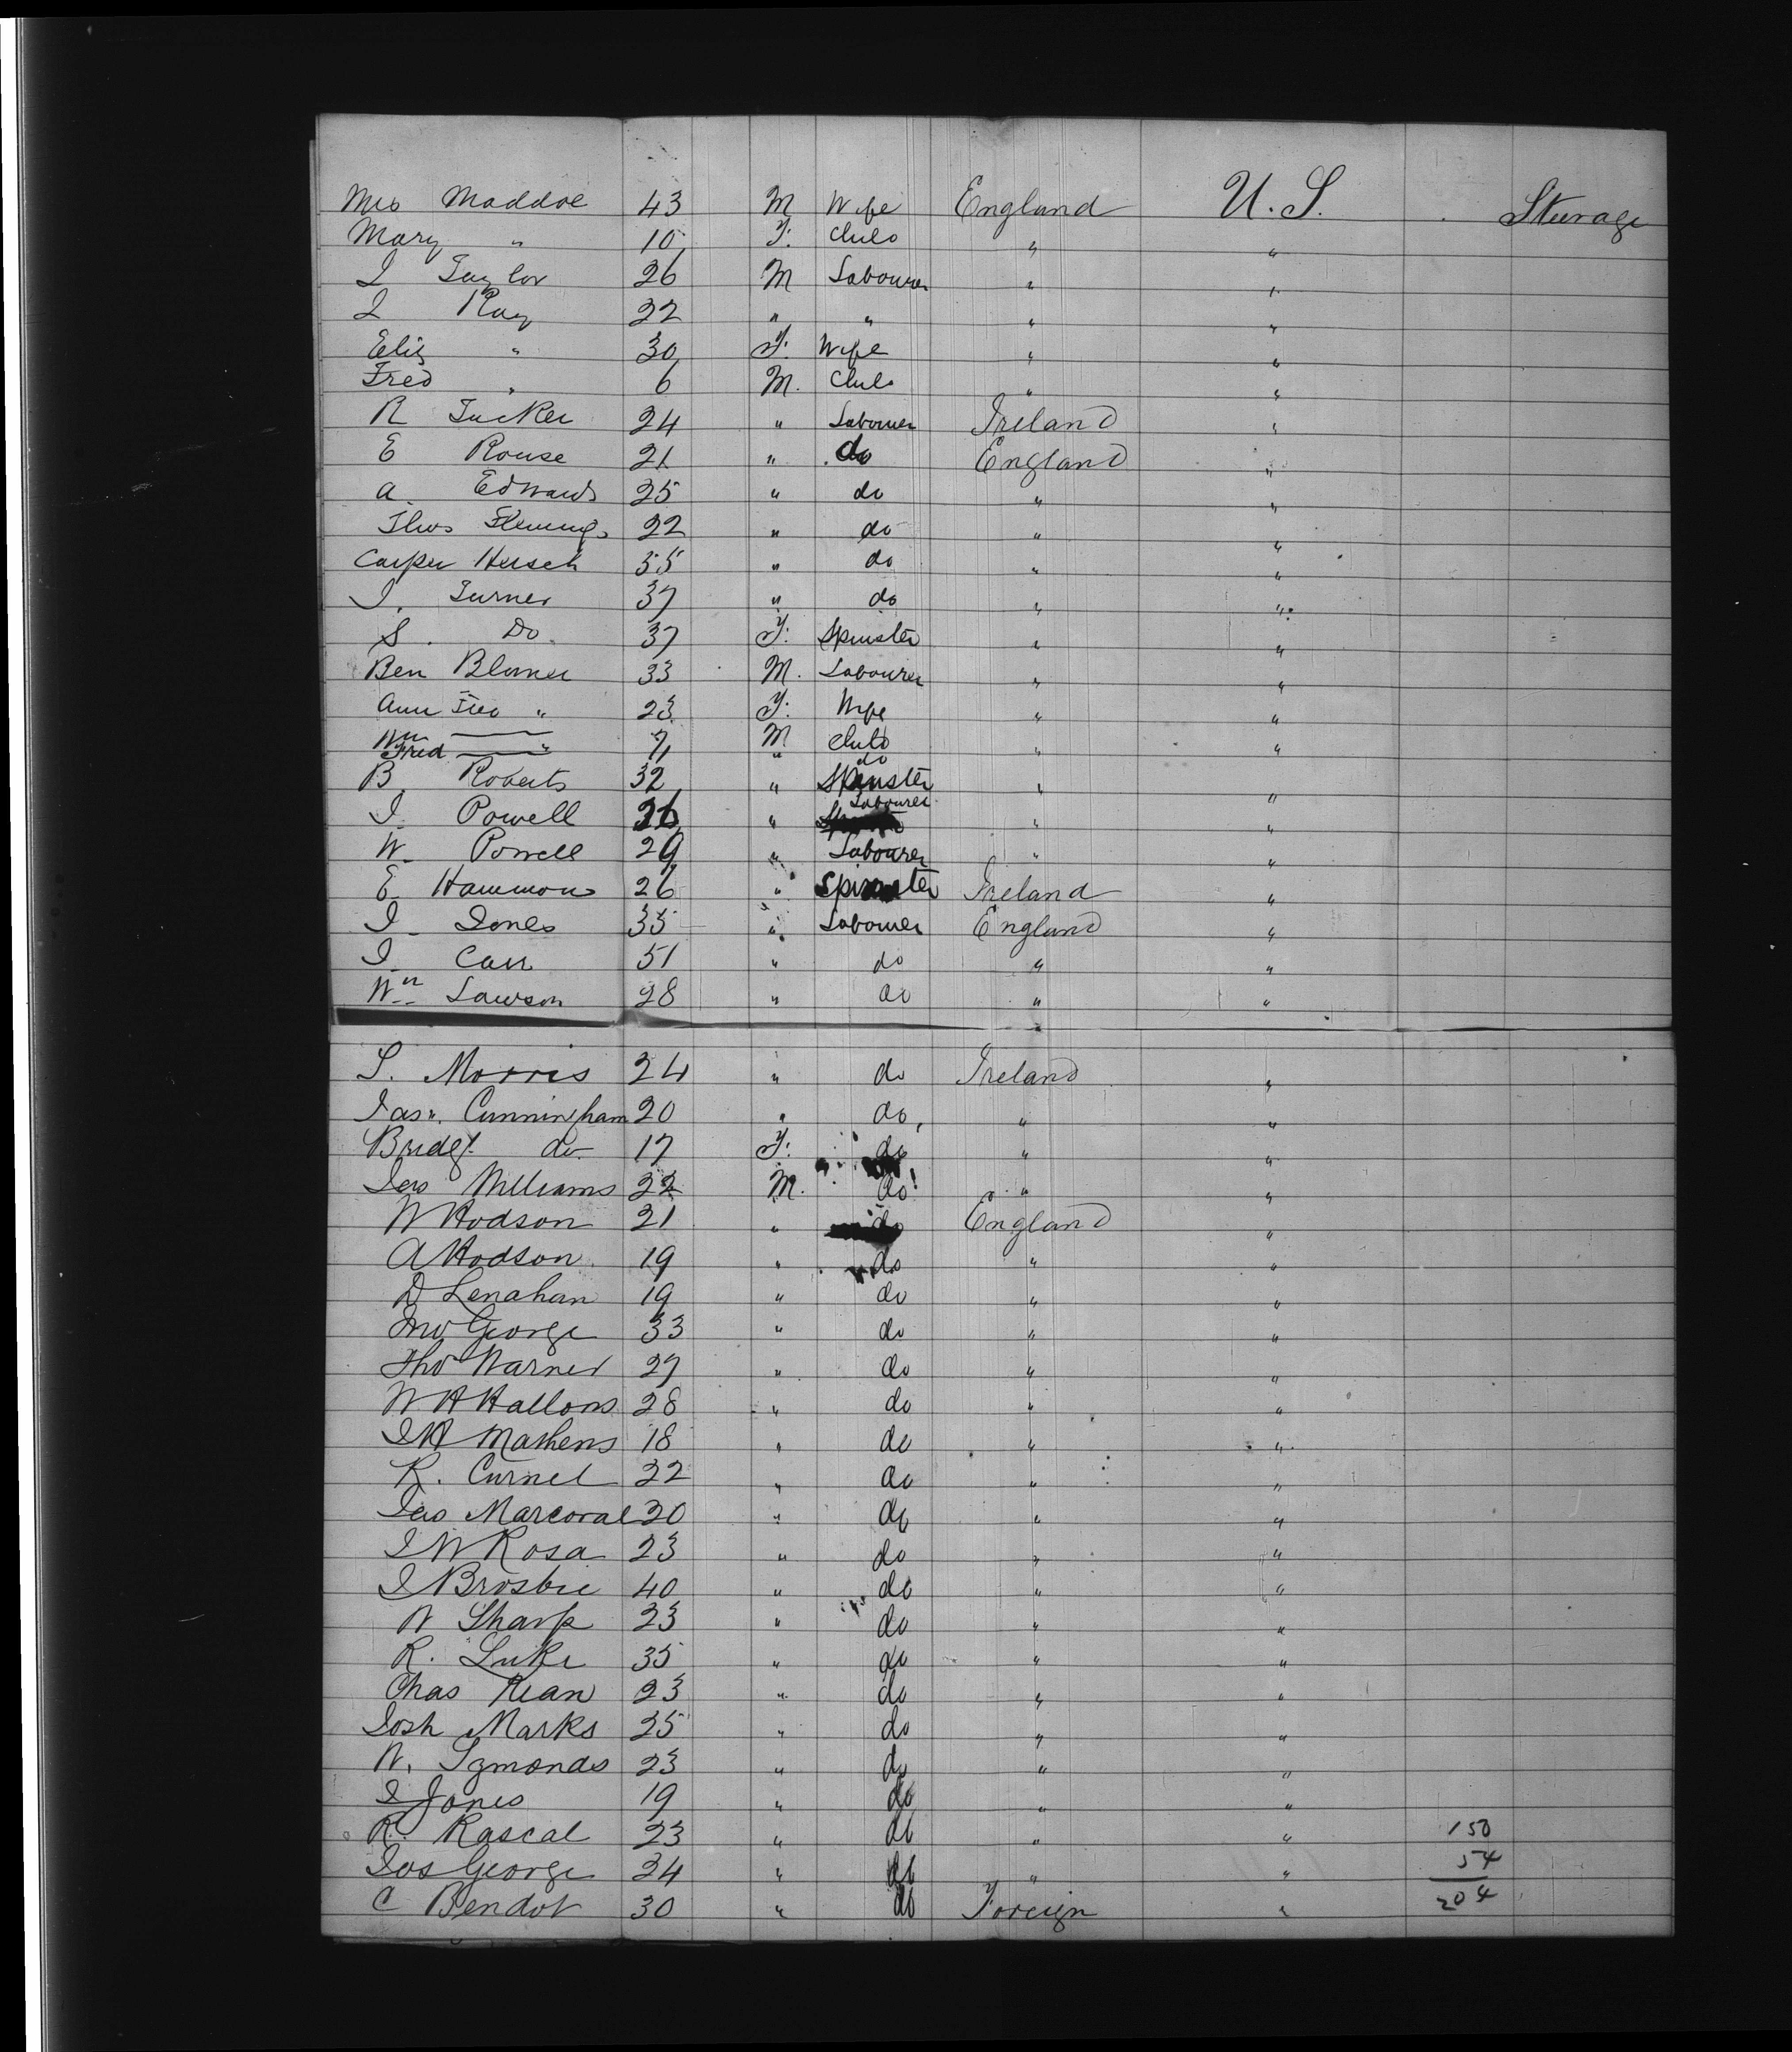 Mrs Maddoe 43 M Wife England U.S. Steerage
Mary " 10 F. Child " "
I Taylor 26 M Labourer " "
I Ray 22 " " " "
Eliz " 30 F. Wife " "
Fred " 6 M. Child " "
R Tucker 24 " Labourer Ireland "
E Rouse 21 " do England "
A. Edwards 25 " do " "
Thos Flemings 22 " do " "
Casper Hersch 35 " do " "
I. Turner 37 " do " "
S. Do. 37 F. Spinster " "
Ben 33 M. Labourer " "
Ann " 23 F. Wife " "
Wm 7 M Child " "
Fred " " do
B Roberts 32 " Spinster " "
I. Powell 26 " Labourer " "
W. Powell 29 " Labourer " "
E. Hammons 26 " Spinster Ireland "
I. Jones 35 " Labourer England "
I. Carr 51 " do " "
Wm Lawson 28 " do " "
S. Morris 24 " do Ireland "
Jas. Cunningham 20 " do " "
Bridgt. do 17 F. do " "
Jas Williams 22 M. do " "
W Hodson 21 " do England "
A Hodson 19 " do " "
D Lenahan 19 " do " "
Jno George 33 " do " "
Tho Warner 27 " do " "
W H Hallons 28 " do " "
I H Mathews 18 " do " "
R. Curnel 22 " do " "
Jas Marcoral 20 " do " "
I W Rosa 23 " do " "
I Brosbie 40 " do " "
W Sharp 23 " do " "
R. Luke 35 " do " "
Chas Kean 23 " do " "
Josh Marks 25 " do " "
W. Symonds 23 " do " "
I Jones 19 " do " "
R. Rascal 23 " do " " 150
Jos George 24 " do " " 54
C Bendot 30 " do Foreign " 204